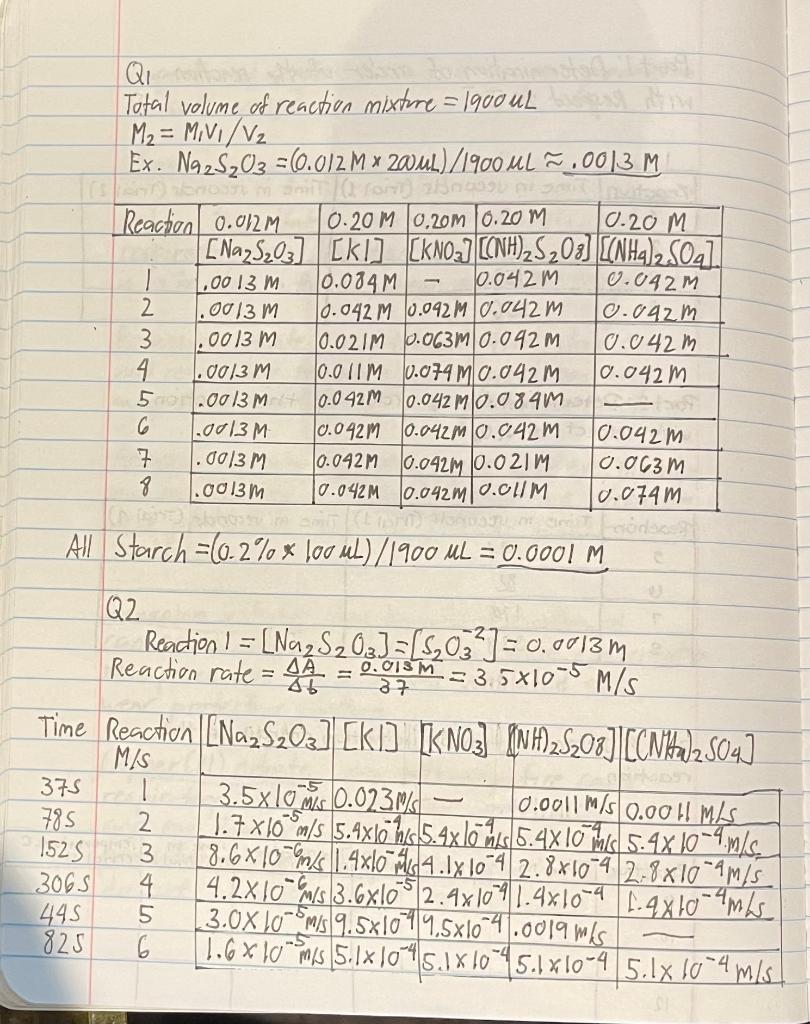 Q1
Total volume of reaction mixture = 1900 uL
M2 = M1V1/V2
Ex. Na2S2O3 = (0.012M x 200uL)/1900 uL ≈ .0013 M
Reaction | 0.012M [Na2S2O3] | 0.20 M [KI] | 0.20M [KNO3] | 0.20 M [(NH)2S2O8] | 0.20 M [(NH4)2SO4]
1 | .0013 M | 0.084M | - | 0.042M | 0.042M
2 | .0013M | 0.042M | 0.042M | 0.042M | 0.042M
3 | .0013 M | 0.021M | 0.063M | 0.042M | 0.042M
4 | .0013 M | 0.011M | 0.074M | 0.042M | 0.042M
5 | .0013 M | 0.042M | 0.042M | 0.084M | —
6 | .0013 M | 0.042M | 0.042M | 0.042M | 0.042M
7 | .0013M | 0.042M | 0.042M | 0.021M | 0.063M
8 | .0013M | 0.042M | 0.042M | 0.011M | 0.074M
All Starch = (0.2% x 100 uL)/1900 uL = 0.0001 M
Q2
Reaction 1 = [Na2S2O3] = [S2O3⁻²] = 0.0013m
Reaction rate = ΔA/Δt = 0.013M/37 = 3.5x10⁻⁵ M/s
Time | Reaction M/s | [Na2S2O3] | [KI] | [KNO3] | [(NH)2S2O8] | [(NH4)2SO4]
37s | 1 | 3.5x10⁻⁵ m/s | 0.023M/s | — | 0.0011 m/s | 0.0011 M/s
78s | 2 | 1.7x10⁻⁵ m/s | 5.4x10⁻⁴ m/s | 5.4x10⁻⁴ m/s | 5.4x10⁻⁴ m/s | 5.4x10⁻⁴ m/s
152s | 3 | 8.6x10⁻⁶ m/s | 1.4x10⁻⁴ m/s | 4.1x10⁻⁴ | 2.8x10⁻⁴ | 2.8x10⁻⁴ m/s
306s | 4 | 4.2x10⁻⁶ m/s | 3.6x10⁻⁵ | 2.4x10⁻⁴ | 1.4x10⁻⁴ | 1.4x10⁻⁴ m/s
44s | 5 | 3.0x10⁻⁵ m/s | 9.5x10⁻⁴ | 9.5x10⁻⁴ | .0019 m/s | —
82s | 6 | 1.6x10⁻⁵ m/s | 5.1x10⁻⁴ | 5.1x10⁻⁴ | 5.1x10⁻⁴ | 5.1x10⁻⁴ m/s